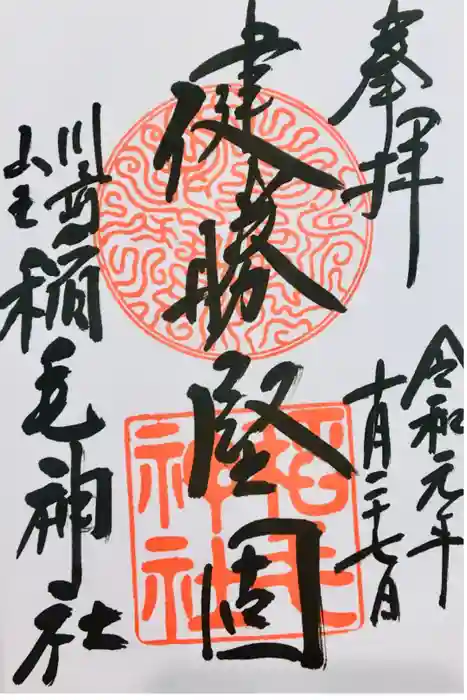 奉拝
令和元年
十月二十七日
健勝堅固
川崎
山王
稲毛神社
稲毛
神社